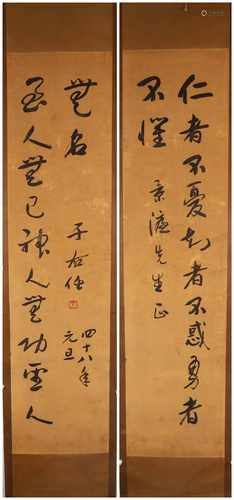 仁者不憂知者不惑勇者
不懼
景濂先生正
至人無己神人無功聖人
無名
于右任
四十八年
元旦